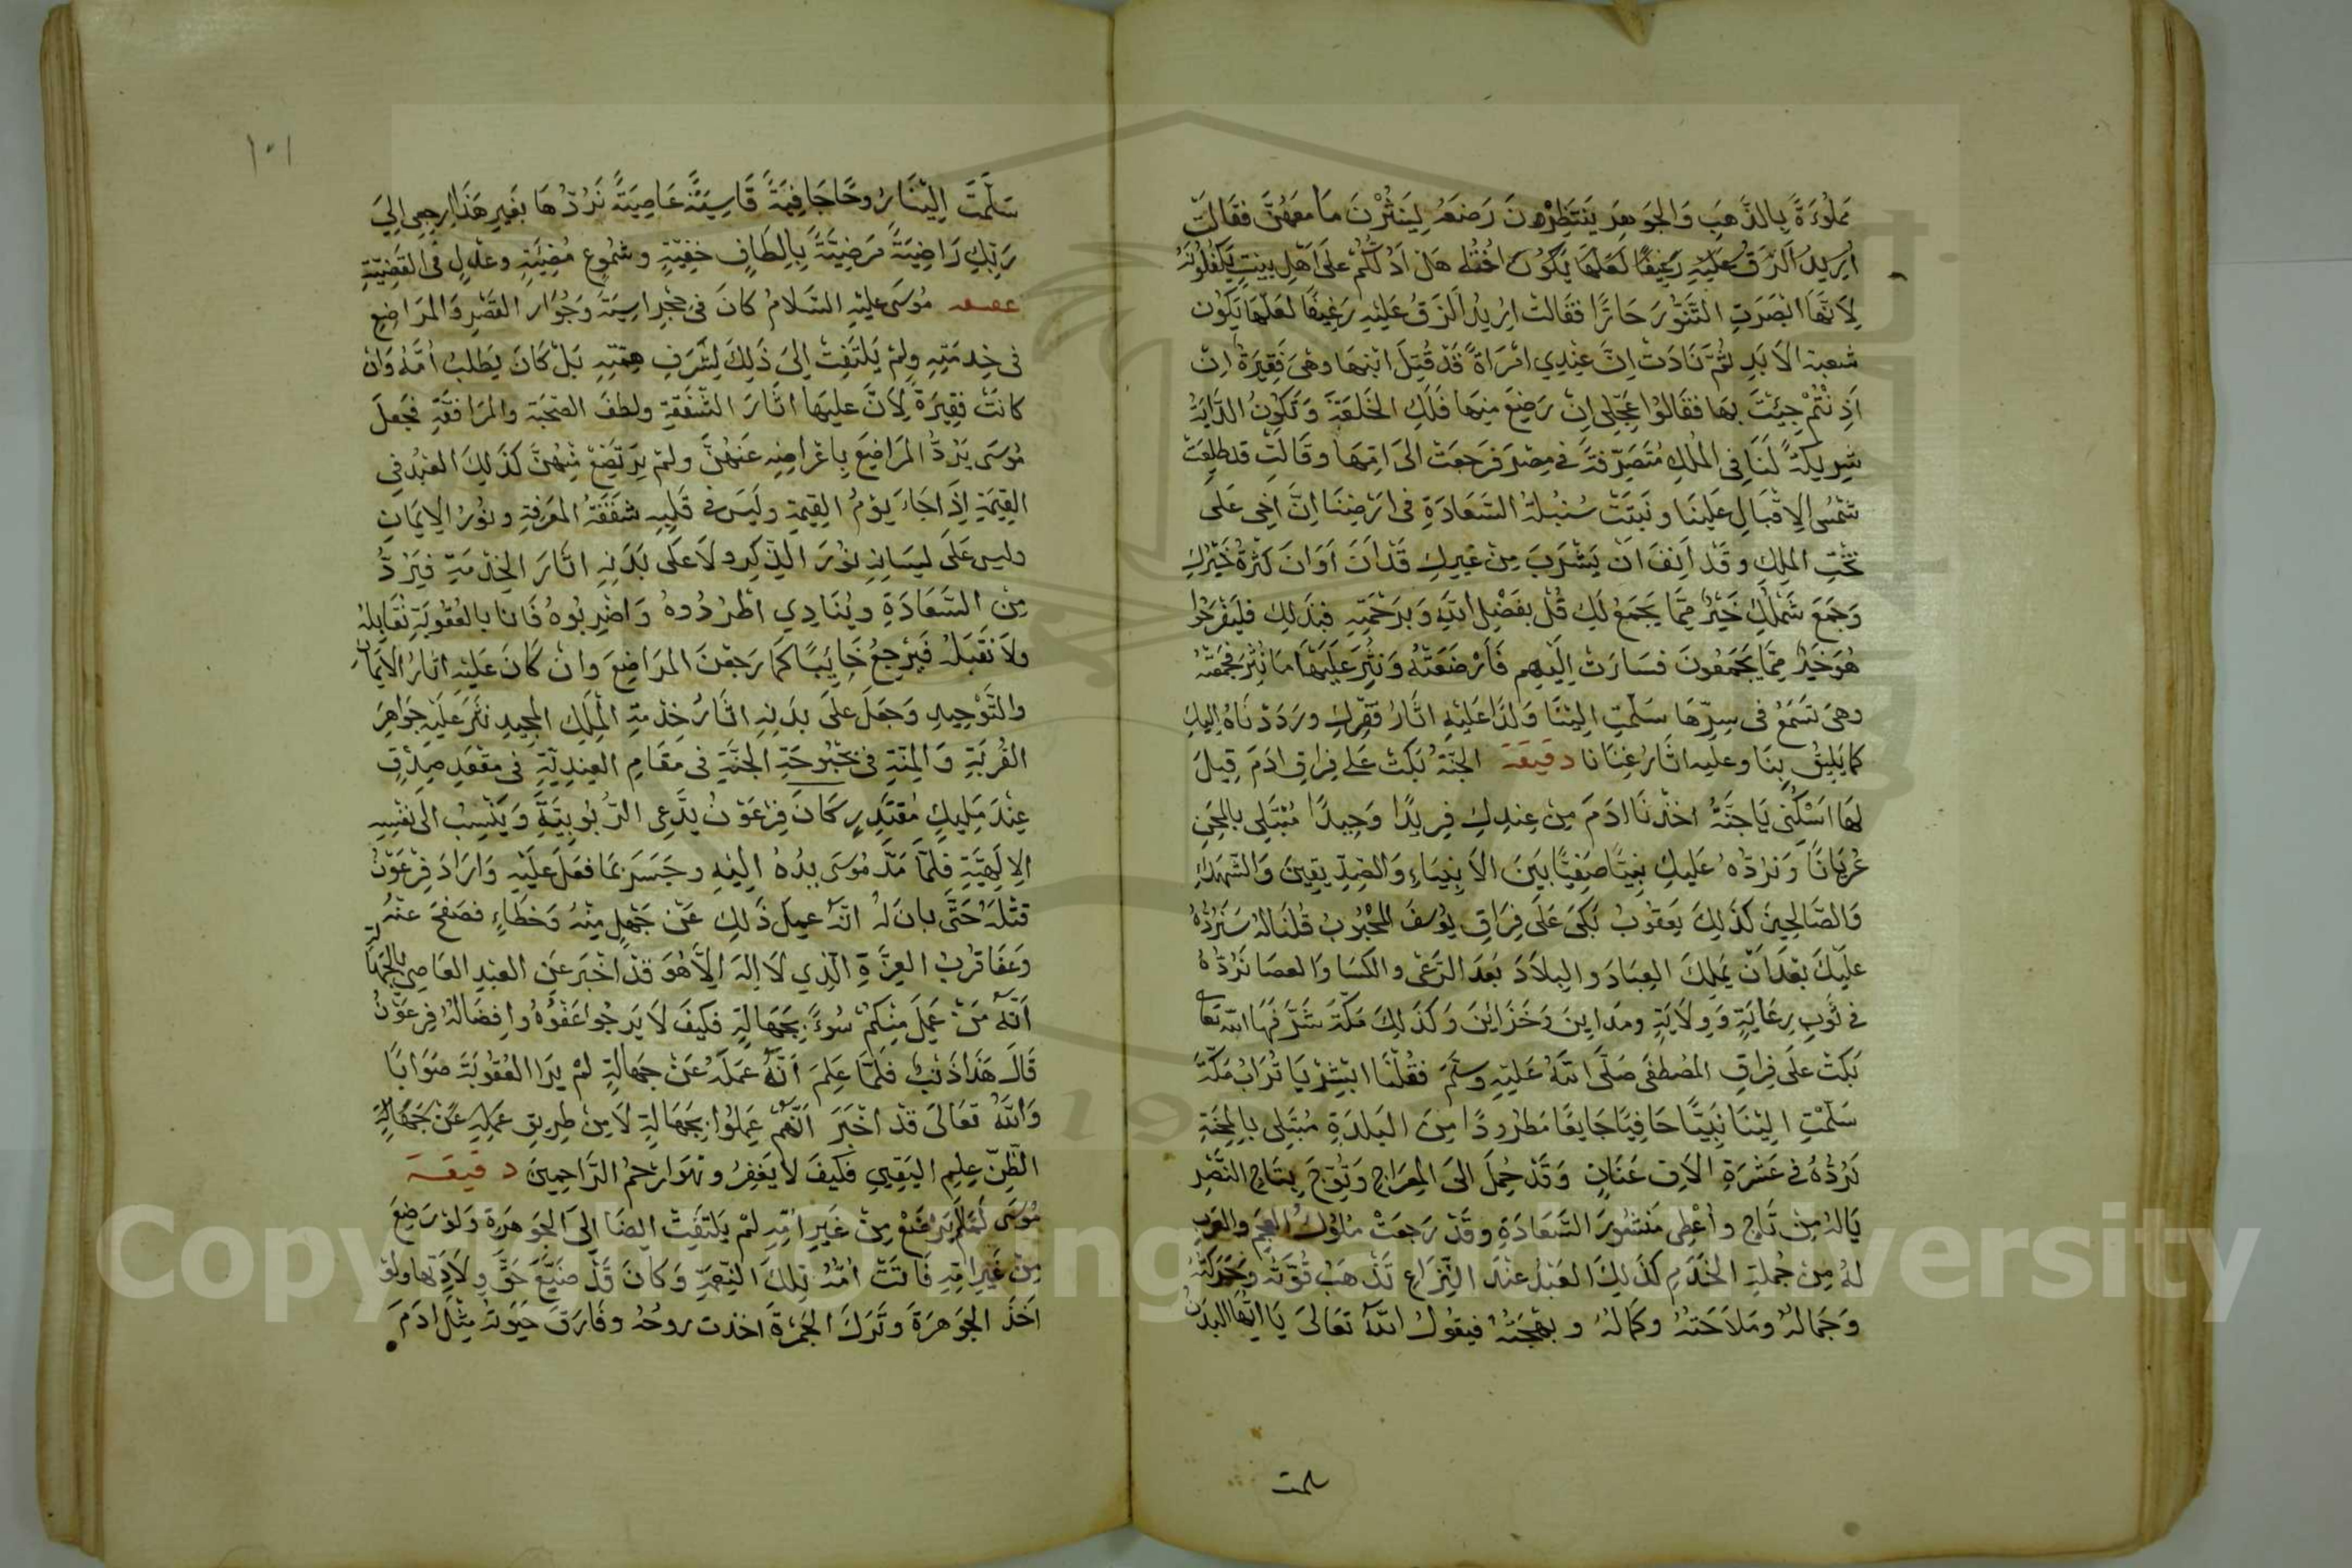 مملوءة بالذهب والجوهر ينتظرهن رضعه لينثرن ما معهن فقالت
اريد الزق عليه رغيفا لعلها يكون اخته هل ادلكم على اهل بيت يكفلونه
لانها ابصرت التنور حارا فقالت اريد الزق عليه رغيفا لعلها يكون
الابد ثم نادت ان عندي امراة قد قتل ابنها وهي فقيرة ان
اذنتم جيئت بها فقالوا عجلي ان رضيع منها فلك الخلعة وتكون الداية
شريكة لنا في الملك متصرفة في مصر فرجعت الى امها وقالت قد طلعت
شمس الاقبال علينا ونبتت سنبلة السعادة في ارضنا ان اخي على
تخت الملك وقد انف ان يشرب من غيرك قد ان اوان كثرة خيرك
وجمع شملك خير مما يجمع لك قل بفضل الله وبرحمته فبذلك فليفرحوا
هو خير مما يجمعون فسارت اليهم فارضعته ونثر عليها ما نثر فجمعته
وهي تسمع في سرها سلمت الينا ولدا عليه اثار فقرك ورددناه اليك
كما يليق بنا وعليه اثار غنانا دقيقة الجنة بكت على فراق ادم قيل
لها اسكني يا جنة اخذنا ادم من عندك فريدا وحيدا مبتلي بالمحن
عريانا ونرده عليك نبيا صفيا بين الانبياء والصديقين والشهداء
والصالحين كذلك يعقوب بكى على فراق يوسف المحبوب قلنا له سنرده
عليك بعد ان يملك العباد والبلاد بعد الرعى والكسا والعصا نرده
في ثوب رعاية وولاية ومداين وخزاين وكذلك مكة شرفها الله تعا
بكت على فراق المصطفى صلى الله عليه وسلم فقلنا ابشر يا تراب مكة
سلمت الينا نبيا حافيا جايعا مطرودا من البلدة مبتلى بالمحنة
نرده في عشرة الاف عنان وقد حمل الى المعراج وتوج بتاج النصر
ياله من تاج واعطى منشور السعادة وقد رجعت ملوك العجم والعرب
له من جملة الخدم كذلك العبد عند النزاع تذهب قوته وحركته
وجماله وملاحته وكماله وبهجته فيقول الله تعالى يا ايها البدن
سلمت
١٠١
سلمت الينا روحا جافية قاسية عاصية نردها بغير هذا ارجعي الى
ربك راضية مرضية بالطاف خفية وشموع مضية وعدل في القضية
موسى عليه السلام كان في حجر اسية وجوار القصر والمراضع
في خدمته ولم يلتفت الى ذلك لشرف همته بل كان يطلب امه وان
كانت فقيرة لان عليها اثار الشفقة ولطف الصحبة والمرافقة فجعل
موسى يرد المراضيع باعراضه عنهن ولم يرتضع منهن كذلك العبد في
القيمة اذا جاء يوم القيمة وليس في قلبه شفقة المعرفة ونور الايمان
وليس على لسانه نور الذكر ولا على بدنه اثار الخدمة فيرد
من السعادة وينادي اطردوه واضربوه فانا بالعقوبة نقابله
ولا نقبله فيرجع خايبا كما رجعن المراضع وان كان عليه اثار الايمان
والتوحيد وجعل على بدنه اثار خدمة الملك المجيد نثر عليه جواهر
القربة والمنة في بحبوحة الجنة في مقام العندية في مقعد صدق
عند مليك مقتدر كان فرعون يدعى الربوبية وينسب الى نفسه
الالهية فلما مد موسى يده اليه وجسر بما فعل عليه واراد فرعون
قتله حتى بان له انه عمل ذلك عن جهل منه وخطاء فصفح عنه
وعفا قرب العزة الذي لا اله الا هو قد اخبر عن العبد العاصي بالجهالة
انه من عمل منكم سوء بجهالة فكيف لا يرجوا عفوه وافضاله فرعون
قال هذا ذنب فلما علم انه عمله عن جهالة لم يرا العقوبة صوابا
والله تعالى قد اخبر انهم عملوا بجهالة لا من طريق عمله عن جهالة
الظن علم اليقين فكيف لا يغفر وهو ارحم الراحمين دقيقة
موسى لما لم يرضع من غير امه لم يلتفت ايضا الى الجوهرة ولو رضع
من غير امه فاتت امه تلك النعمة وكان قد ضيع حق ولادتها ولو
اخذ الجوهرة وترك الجمرة اخذت روحه وفارق حيوته مثل ادم